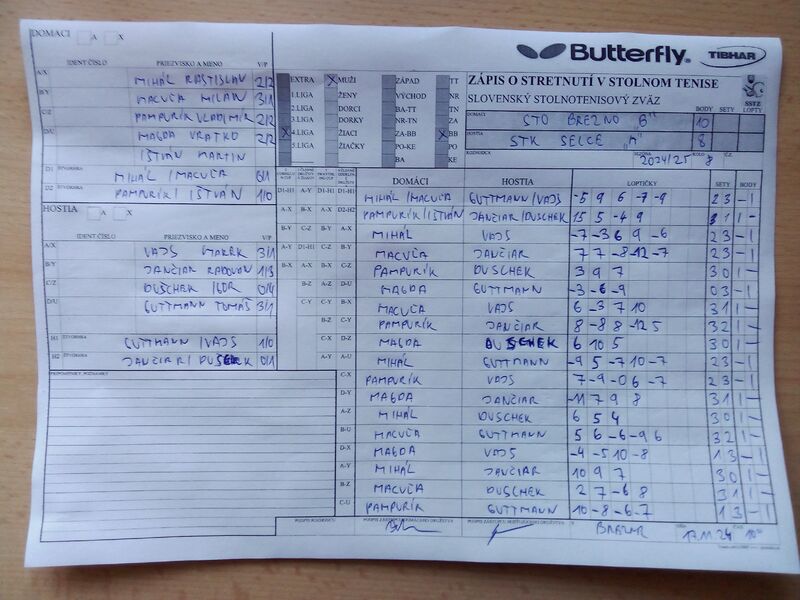 DOMACI A X
Butterfly TIBHAR
IDENT ČÍSLO PRIEZVISKO A MENO V/P
A/X MIHÁL RASTISLAV 2/2
B/Y MACUĽA MILAN 3/1
C/Z PAMPURÍK VLADIMÍR 2/2
D/U MAGDA VRATKO 2/2
IŠTVÁN MARTIN
D1 ŠTVORHRA MIHÁL / MACUĽA 0/1
D2 ŠTVORHRA PAMPURÍK / IŠTVÁN 1/0
HOSTIA A X
IDENT ČÍSLO PRIEZVISKO A MENO V/P
A/X VAJS MAREK 3/1
B/Y JANČIAR RADOVAN 1/3
C/Z DUSCHEK IGOR 0/4
D/U GUTTMANN TOMÁŠ 3/1
H1 ŠTVORHRA GUTTMANN / VAJS 1/0
H2 ŠTVORHRA JANČIAR / DUSCHEK 0/1
PRIPOMIENKY, POZNÁMKY
EXTRA X MUŽI ZÁPAD TT
1.LIGA ŽENY VÝCHOD NR
2.LIGA DORCI BA-TT TN
3.LIGA DORKY NR-TN ZA
X 4.LIGA ŽIACI ZA-BB X BB
5.LIGA ŽIAČKY PO-KE PO
BA KE
ZÁPIS O STRETNUTÍ V STOLNOM TENISE
SLOVENSKÝ STOLNOTENISOVÝ ZVÄZ SSTZ
BODY SETY LOPTY
DOMÁCI STO BREZNO "B" 10
HOSTIA STK SELCE "A" 8
ROZHODCA SEZÓNA 2024/25 KOLO 8 Č.Z.
DOMÁCI HOSTIA LOPTIČKY SETY BODY
D1-H1 MIHÁL / MACUĽA GUTTMANN / VAJS -5 9 6 -7 -9 2 3 - 1
D2-H2 PAMPURÍK / IŠTVÁN JANČIAR / DUSCHEK 15 5 -4 9 3 1 1 -
A-X MIHÁL VAJS -7 -3 6 9 -6 2 3 - 1
B-Y MACUĽA JANČIAR 7 7 -8 -12 -7 2 3 - 1
C-Z PAMPURÍK DUSCHEK 3 9 7 3 0 1 -
D-U MAGDA GUTTMANN -3 -6 -9 0 3 - 1
B-X MACUĽA VAJS 6 -3 7 10 3 1 1 -
C-Y PAMPURÍK JANČIAR 8 -8 8 -12 5 3 2 1 -
D-Z MAGDA DUSCHEK 6 10 5 3 0 1 -
A-U MIHÁL GUTTMANN -9 5 -7 10 -7 2 3 - 1
C-X PAMPURÍK VAJS 7 -9 -0 6 -7 2 3 - 1
D-Y MAGDA JANČIAR -11 7 9 8 3 1 1 -
A-Z MIHÁL DUSCHEK 6 5 4 3 0 1 -
B-U MACUĽA GUTTMANN 5 6 -6 -9 6 3 2 1 -
D-X MAGDA VAJS -4 -5 10 -8 1 3 - 1
A-Y MIHÁL JANČIAR 10 9 7 3 0 1 -
B-Z MACUĽA DUSCHEK 2 7 -6 8 3 1 1 -
C-U PAMPURÍK GUTTMANN 10 -8 -6 -7 1 3 - 1
PODPIS ROZHODCU
17.11.24